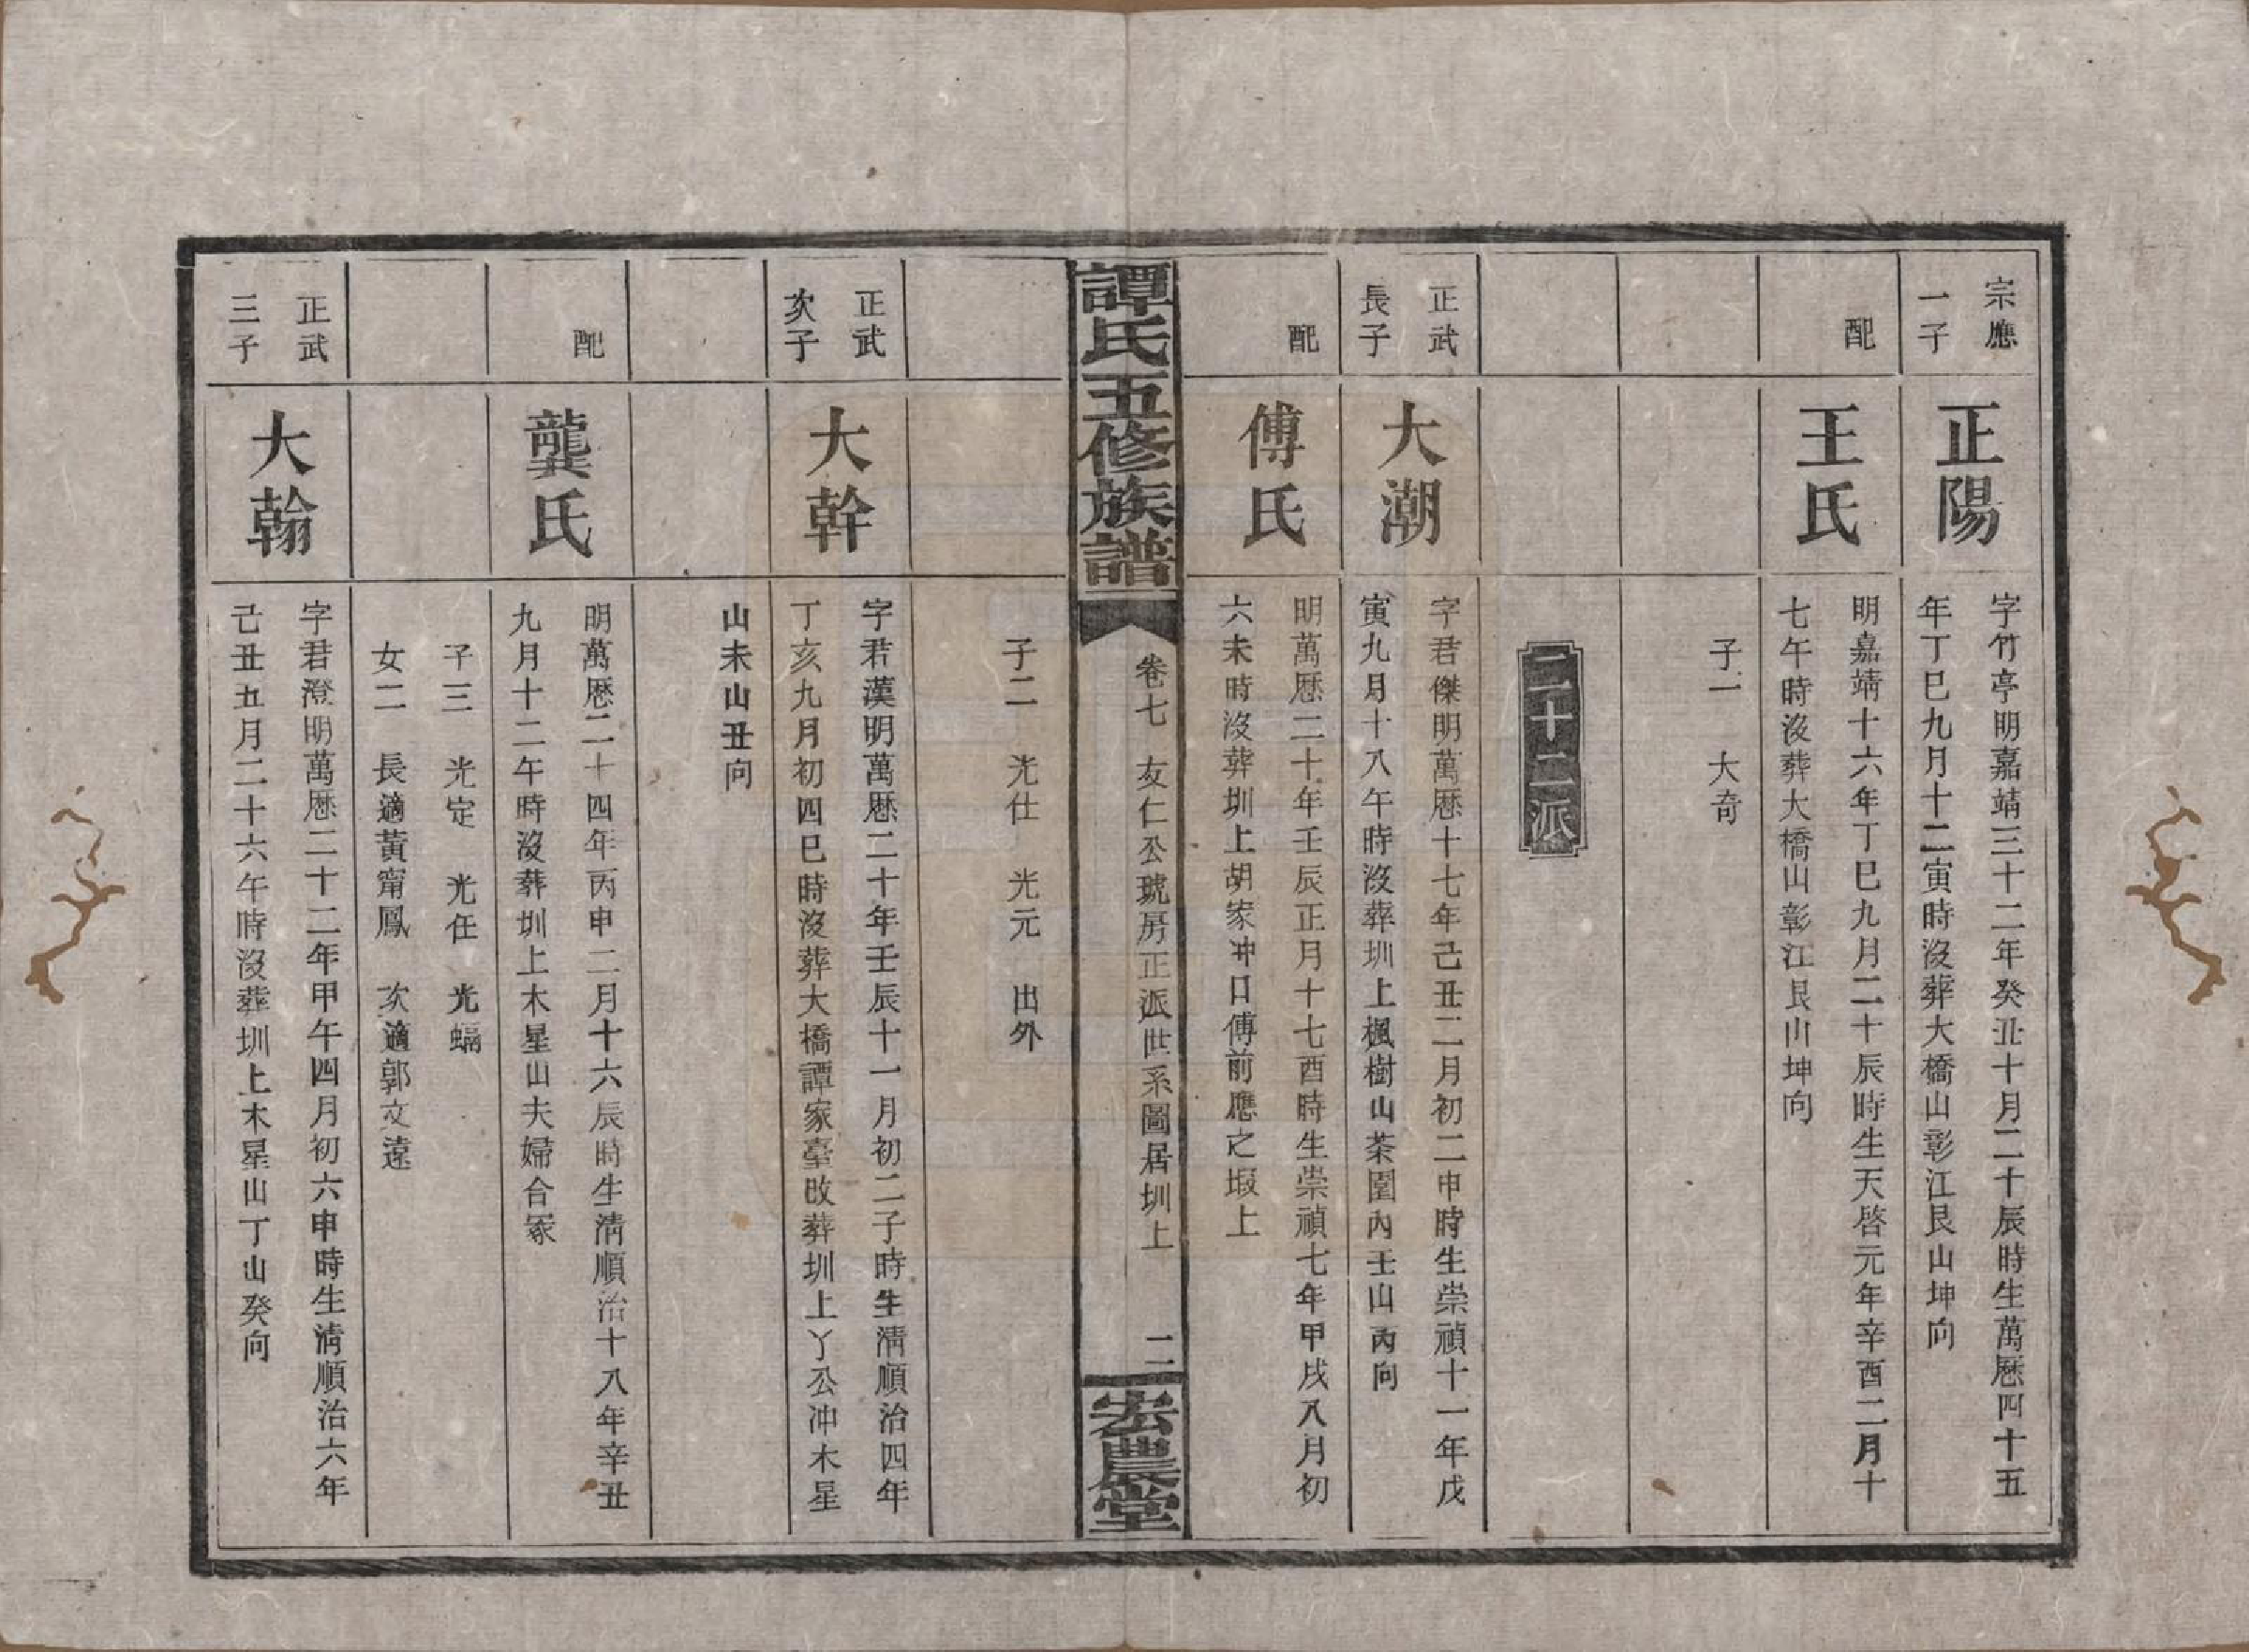 宗應
一子
正陽
字竹亭明嘉靖三十二年癸丑十月二十辰時生萬歷四十五
年丁巳九月十二寅時沒葬大橋山彰江艮山坤向
配
王氏
明嘉靖十六年丁巳九月二十辰時生天啓元年辛酉二月十
七午時沒葬大橋山彰江艮山坤向
子一　大奇
二十二派
正武
長子
大潮
字君傑明萬歷十七年己丑二月初二申時生崇禎十一年戊
寅九月十八午時沒葬圳上楓樹山茶園內壬山丙向
配
傅氏
明萬歷二十年壬辰正月十七酉時生崇禎七年甲戌八月初
六未時沒葬圳上胡家冲口傅前應之塅上
譚氏五修族譜
卷七　友仁公琥房正派世系圖居圳上
二
宏農堂
子二　光仕　光元　出外
正武
次子
大幹
字君漢明萬歷二十年壬辰十一月初二子時生淸順治四年
丁亥九月初四巳時沒葬大橋譚家臺改葬圳上丫公冲木星
山未山丑向
配
龔氏
明萬歷二十四年丙申二月十六辰時生淸順治十八年辛丑
九月十二午時沒葬圳上木星山夫婦合冢
子三　光定　光任　光蝠
女二　長適黃甯鳳　次適郭文遠
正武
三子
大翰
字君澄明萬歷二十二年甲午四月初六申時生淸順治六年
己丑五月二十六午時沒葬圳上木星山丁山癸向